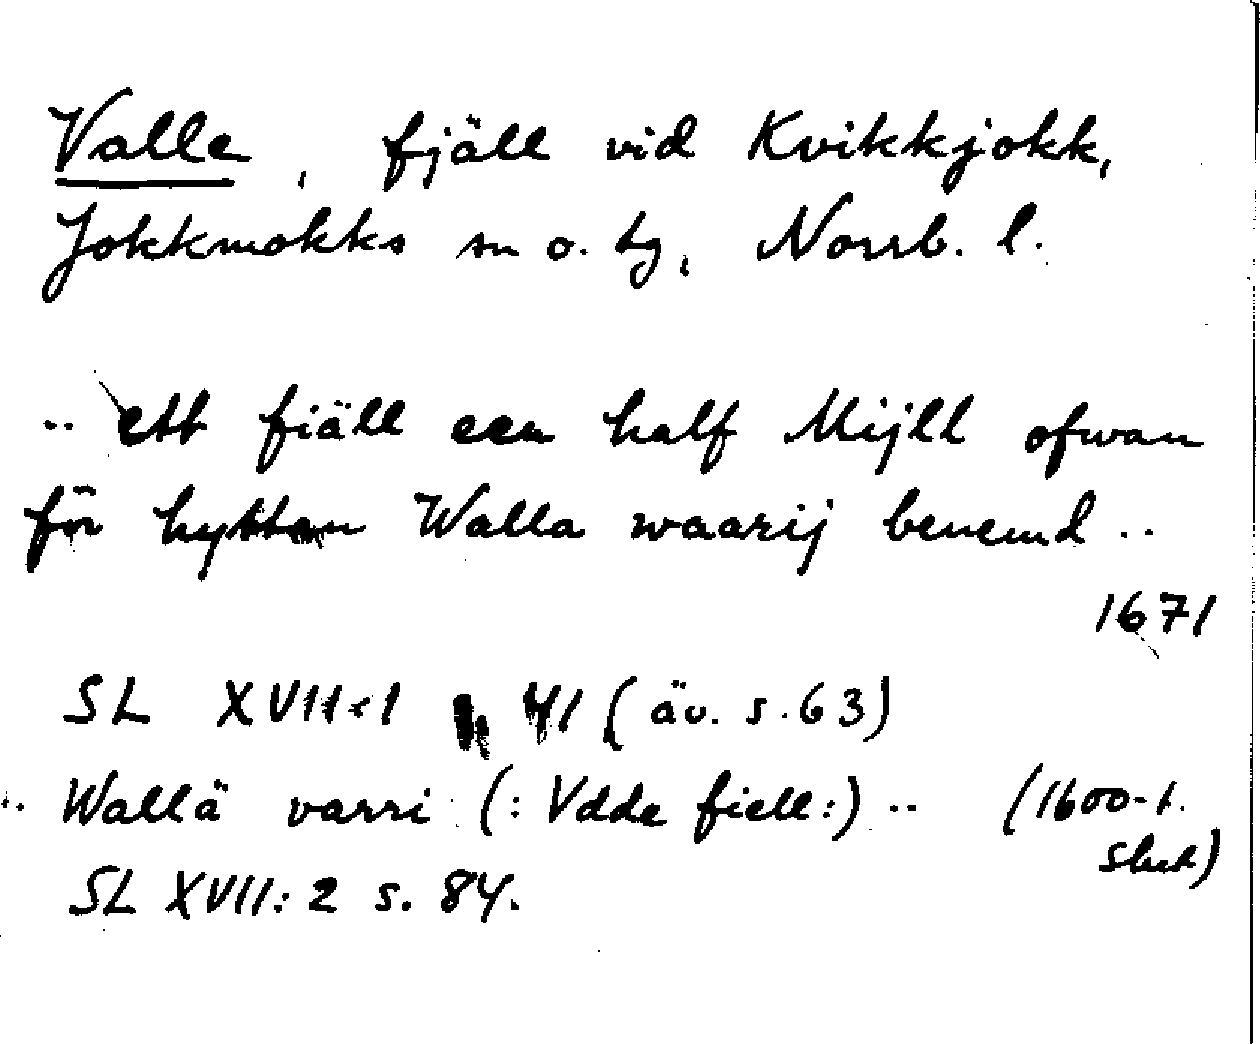 Valle, fjäll vid Kvikkjokk,
Jokkmokks sn o. tg, Norrb. l.
.. ett fiäll een half Mijll ofwan
för hyttan Walla waarij benemd ..
1671
SL XVII:1 41 (äv. s. 63)
.. Wallä varri (: Vdde fiell:) .. (1600-t.
slut)
SL XVII: 2 s. 84.